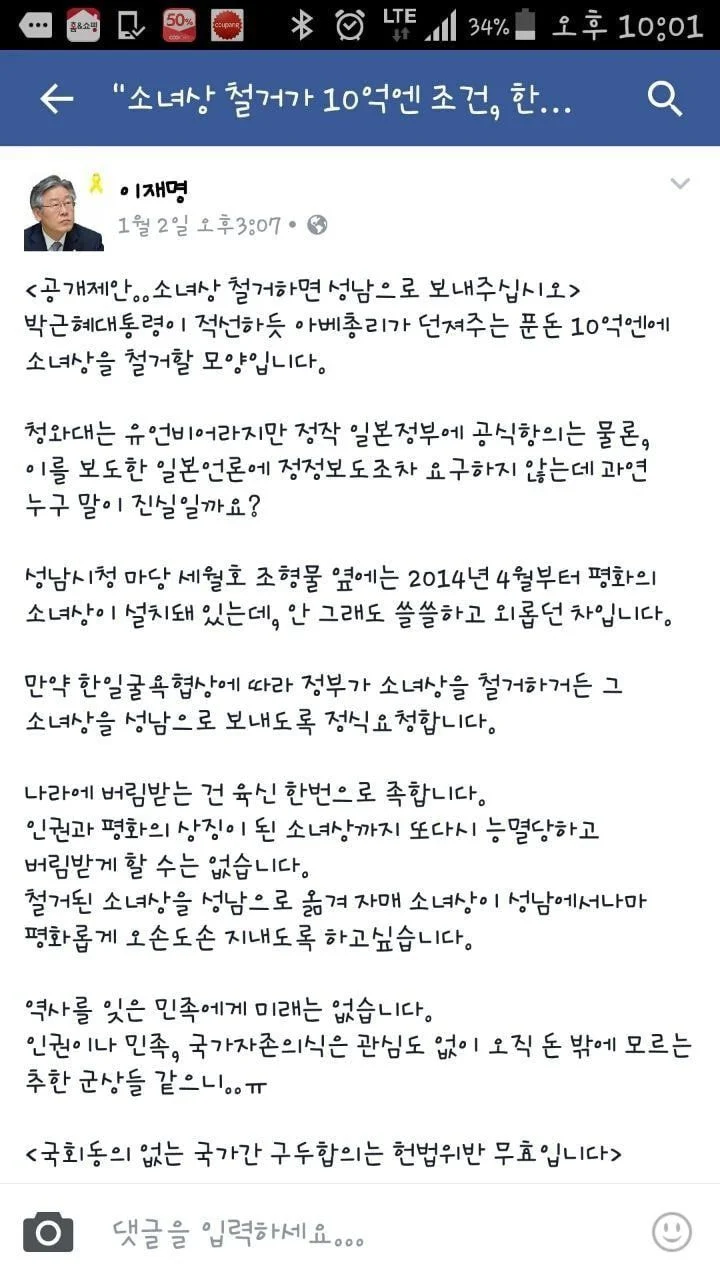 홈&쇼핑
50%
coupang
LTE
34%
오후 10:01
"소녀상 철거가 10억엔 조건, 한...
이재명
1월 2일 오후3:07 •
<공개제안..소녀상 철거하면 성남으로 보내주십시오>
박근혜대통령이 적선하듯 아베총리가 던져주는 푼돈 10억엔에
소녀상을 철거할 모양입니다.
청와대는 유언비어라지만 정작 일본정부에 공식항의는 물론,
이를 보도한 일본언론에 정정보도조차 요구하지 않는데 과연
누구 말이 진실일까요?
성남시청 마당 세월호 조형물 옆에는 2014년 4월부터 평화의
소녀상이 설치돼 있는데, 안 그래도 쓸쓸하고 외롭던 차입니다.
만약 한일굴욕협상에 따라 정부가 소녀상을 철거하거든 그
소녀상을 성남으로 보내도록 정식요청합니다.
나라에 버림받는 건 육신 한번으로 족합니다.
인권과 평화의 상징이 된 소녀상까지 또다시 능멸당하고
버림받게 할 수는 없습니다.
철거된 소녀상을 성남으로 옮겨 자매 소녀상이 성남에서나마
평화롭게 오손도손 지내도록 하고싶습니다.
역사를 잊은 민족에게 미래는 없습니다.
인권이나 민족, 국가자존의식은 관심도 없이 오직 돈 밖에 모르는
추한 군상들 같으니..ㅠ
<국회동의 없는 국가간 구두합의는 헌법위반 무효입니다>
댓글을 입력하세요...